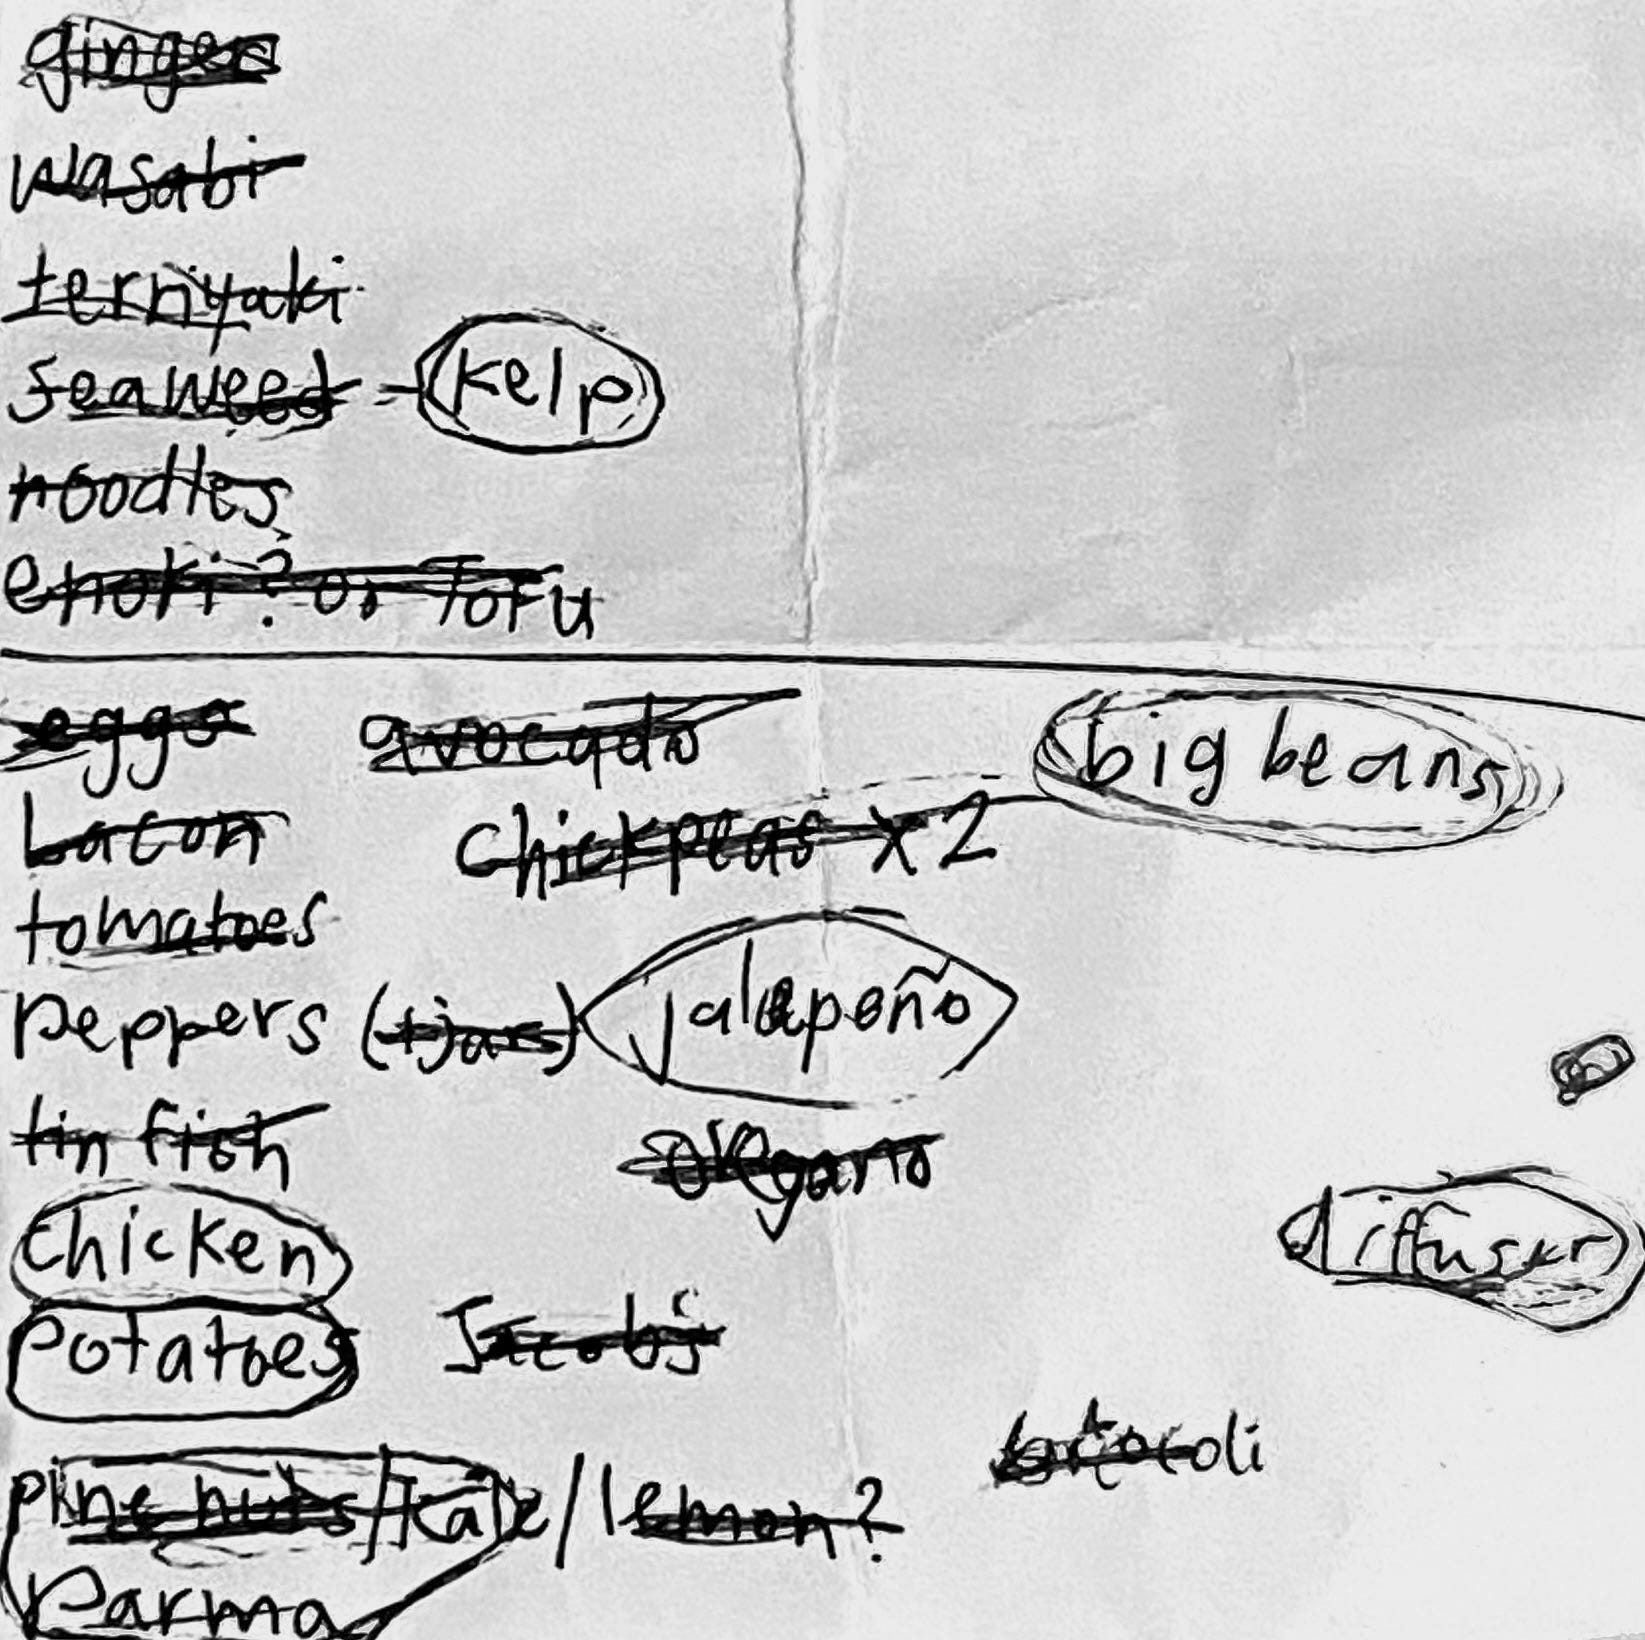 ginger
wasabi
terriyaki
seaweed - kelp
noodles
enoki? or Tofu
eggs avocado big beans
bacon chickpeas x2
tomatoes
Peppers (+jars) jalepeño
tin fish oregano
chicken diffuser
Potatoes Jacobs
brocoli
pine nuts/kale/lemon?
Parma